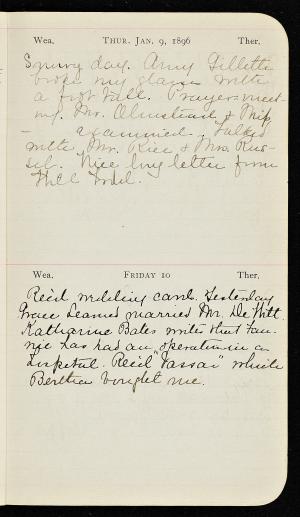 Wea. THUR. JAN. 9, 1896 Ther.
Snowy day. Amy Gillette
broke my glasses with
a foot ball. Prayer-meet-
ing. Mr. Olmstead &
examined. Talked
with Mr. Rice & Mrs. Rus-
sel. Nice long letter from
Wea. FRIDAY 10 Ther.
Rec'd wedding cards. Yesterday
Grace Leamed married Mr. De Witt.
Katharine Bates writes that Fan-
nie has had an operation in a
hospital. Rec'd "Vassar" which
Bertha bought me.